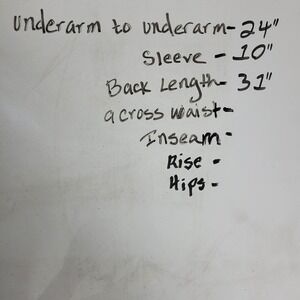 underarm to underarm- 24"
Sleeve - 10"
Back Length- 31"
across waist-
Inseam-
Rise -
Hips-